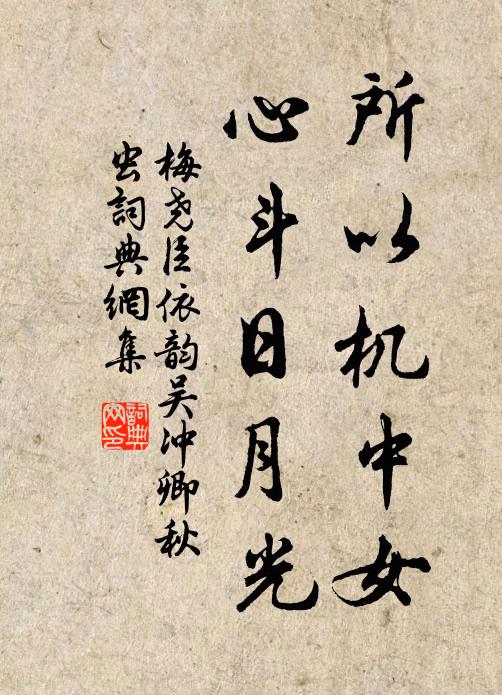 所以机中女
心斗日月光
梅尧臣依韵吴冲卿秋
虫詞典網集
詞典网印